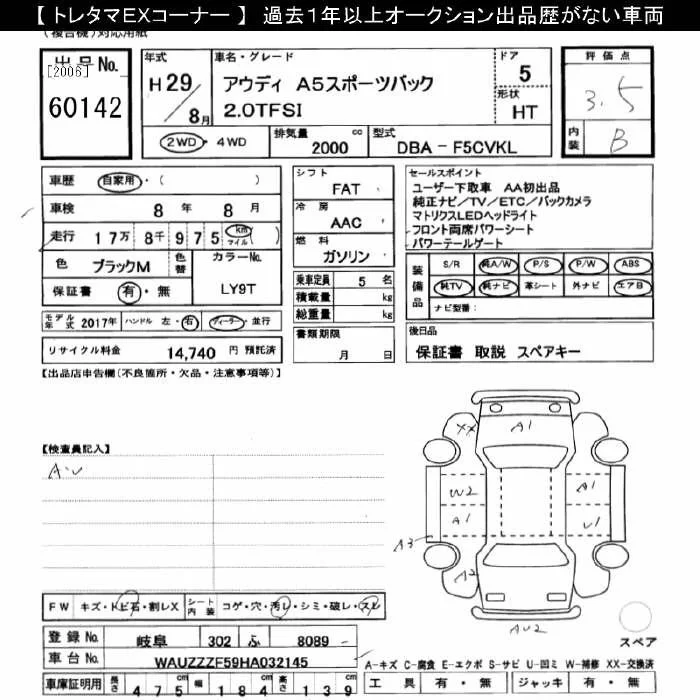 【 トレタマEXコーナー 】 過去1年以上オークション出品歴がない車両
(複合機)対応用紙
出品No.
[2006]
60142
年式
H29/8月
車名・グレード
アウディ A5スポーツバック
2.0TFSI
ドア
5
形状
HT
2WD・4WD
排気量 2000 cc
型式 DBA - F5CVKL
評価点
3.5
内装
B
車歴 自家用・( )
車検 8年 8月
走行 17万 8千 975 km マイル( )
色 ブラックM
色替
カラーNo.
LY9T
保証書 有・無
モデル年式 2017年 ハンドル 左・右 ディーラー・並行
リサイクル料金 14,740 円 預託済
シフト
FAT
冷房
AAC
燃料
ガソリン
乗車定員 5 名
積載量 kg
総重量 kg
書類期限
月 日
セールスポイント
ユーザー下取車 AA初出品
純正ナビ/TV/ETC/バックカメラ
マトリクスLEDヘッドライト
フロント両席パワーシート
パワーテールゲート
装備品
S/R 純A/W P/S P/W ABS
純TV 純ナビ 革シート 外ナビ エアB
ナビ型番:
後日品
保証書 取説 スペアキー
【出品店申告欄(不良箇所・欠品・注意事項等)】
【検査員記入】
XX
A1
W2
A1
A1
U1
A3
A2
AU2
スペア
FW キズ・トビ石・割レX シート内装 コゲ・穴・汚レ・シミ・破レ・スレ
登録No. 岐阜 302 ふ 8089
車台No. WAUZZZF59HA032145
車庫証明用 長さ 475 幅 184 高さ 139
A-キズ C-腐食 E-エクボ S-サビ U-凹ミ W-補修 XX-交換済
工具 有・無 ジャッキ 有・無